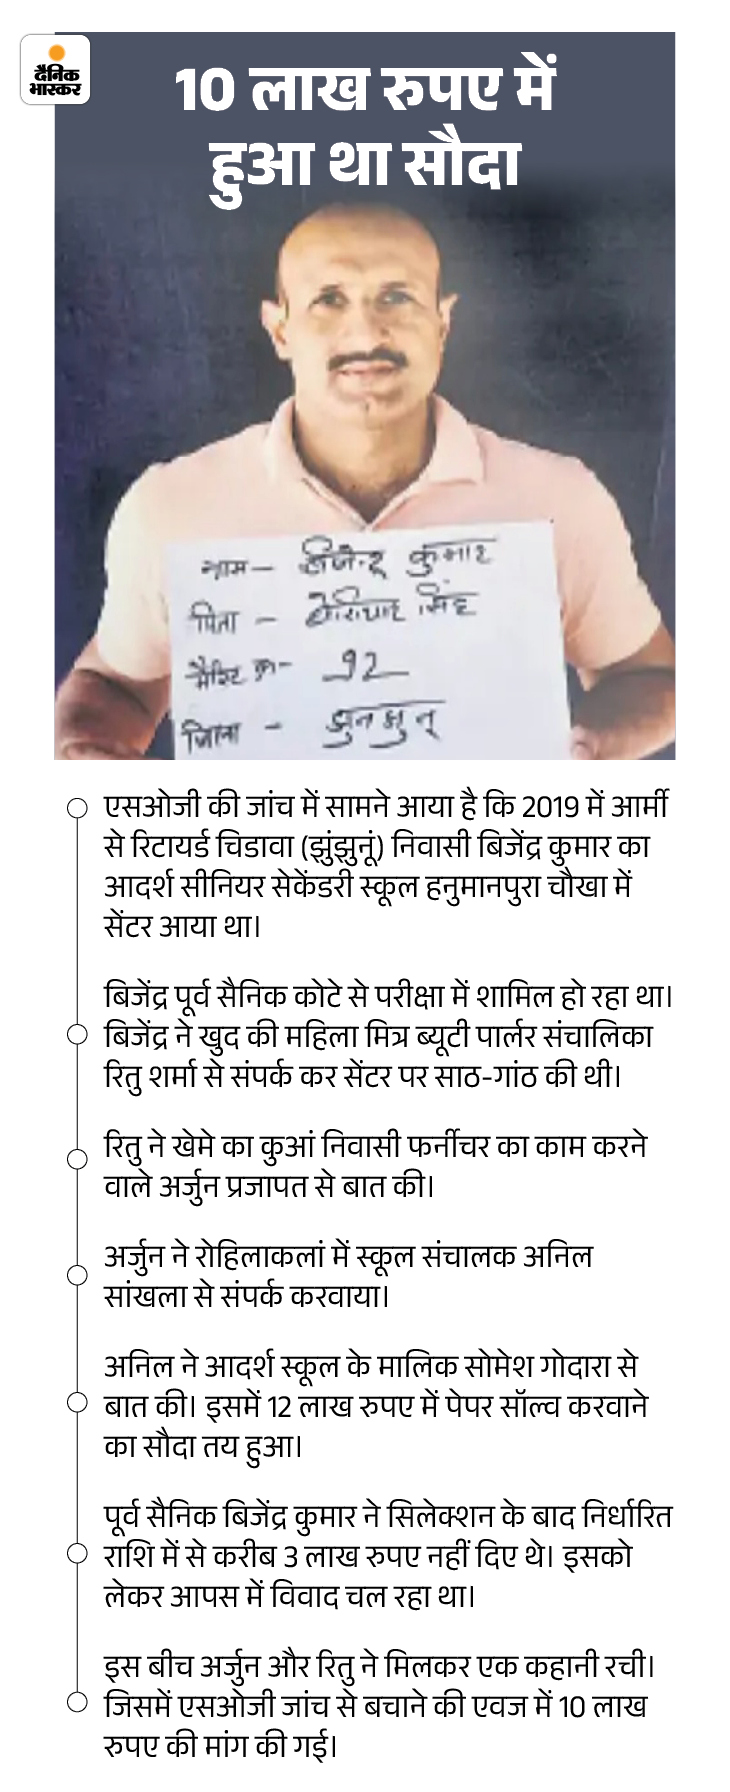 दैनिक
भास्कर
10 लाख रुपए में
हुआ था सौदा
नाम - बीजेन्द्र कुमार
पिता - सिंह
मैरिट क्र- 92
जिला - झुनझुनू
एसओजी की जांच में सामने आया है कि 2019 में आर्मी
से रिटायर्ड चिडावा (झुंझुनूं) निवासी बिजेंद्र कुमार का
आदर्श सीनियर सेकेंडरी स्कूल हनुमानपुरा चौखा में
सेंटर आया था।
बिजेंद्र पूर्व सैनिक कोटे से परीक्षा में शामिल हो रहा था।
बिजेंद्र ने खुद की महिला मित्र ब्यूटी पार्लर संचालिका
रितु शर्मा से संपर्क कर सेंटर पर साठ-गांठ की थी।
रितु ने खेमे का कुआं निवासी फर्नीचर का काम करने
वाले अर्जुन प्रजापत से बात की।
अर्जुन ने रोहिलाकलां में स्कूल संचालक अनिल
सांखला से संपर्क करवाया।
अनिल ने आदर्श स्कूल के मालिक सोमेश गोदारा से
बात की। इसमें 12 लाख रुपए में पेपर सॉल्व करवाने
का सौदा तय हुआ।
पूर्व सैनिक बिजेंद्र कुमार ने सिलेक्शन के बाद निर्धारित
राशि में से करीब 3 लाख रुपए नहीं दिए थे। इसको
लेकर आपस में विवाद चल रहा था।
इस बीच अर्जुन और रितु ने मिलकर एक कहानी रची।
जिसमें एसओजी जांच से बचाने की एवज में 10 लाख
रुपए की मांग की गई।